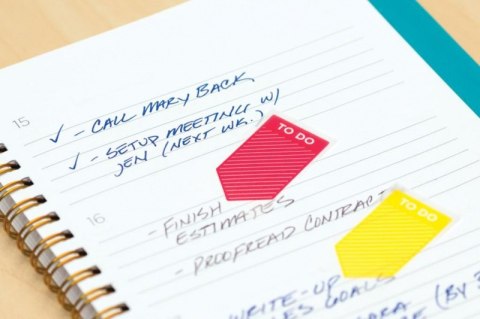 15
✓ - CALL MARY BACK
✓ - SETUP MEETING W/
JEN (NEXT WK.)
TO DO
16
- FINISH
ESTIMATES
- PROOFREAD CONTRAC
TO DO
WRITE-UP
GOALS
(BY